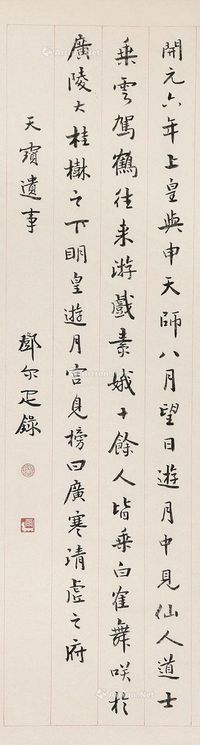 開元六年上皇與申天師八月望日遊月中見仙人道士
乘雲駕鶴往来游戲素娥十餘人皆乘白鸾舞咲於
廣陵大桂樹之下明皇遊月宮見榜曰廣寒清虛之府
天寶遺事
鄧尔疋錄